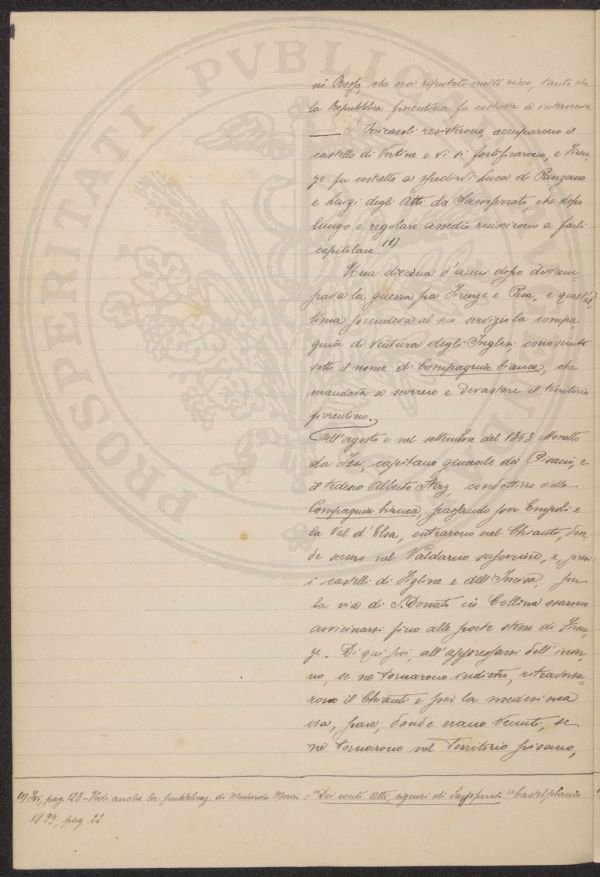 PROSPERITATI PVBLICAE
ni Rossa, che era riputato molto ricco, tanto che
la Repubblica fiorentina fu costretta a intervenire.
— I Ricasoli resistirono, occuparono il
castello di Vertine e vi si fortificarono, e Firen-
ze fu costretta a spedirvi Luca di Panzano
e Luigi degli Atti da Sassoferrato, che dopo
lungo e regolare assedio riuscirono a farli
capitolare. (1)
Una diecina d'anni dopo divam
pava la guerra fra Firenze e Pisa, e quest'ul-
tima prendeva al suo servizio la compa-
gnia di ventura degli Inglesi, conosciuta
sotto il nome di Compagnia bianca, che
mandava a scorrere e devastare il territorio
fiorentino.
Nell'agosto e nel settembre del 1363 Manetto
da Jesi, capitano generale dei Pisani, e
il tedesco Alberto Sterz, condottiero della
Compagnia bianca, passando per Empoli e
la Val d'Elsa, entrarono nel Chianti, don-
de scesero nel Valdarno superiore, e, presi
i castelli di Figline e dell'Incisa, per
la via di S. Donato in Collina osarono
avvicinarsi fino alle porte stesse di Firen-
ze. Di qui poi, all'appressarsi dell'inver-
no, se ne tornarono indietro, ritraversa-
rono il Chianti e per la medesima
via, donde erano venuti, se
ne tornarono nel territorio pisano,
(1) Ivi, pag. 123 - Vedi anche la pubblicaz. di Medardo Morici: "Dei conti Atti, signori di Sassoferrato" Castelplanio
1899, pag. 22